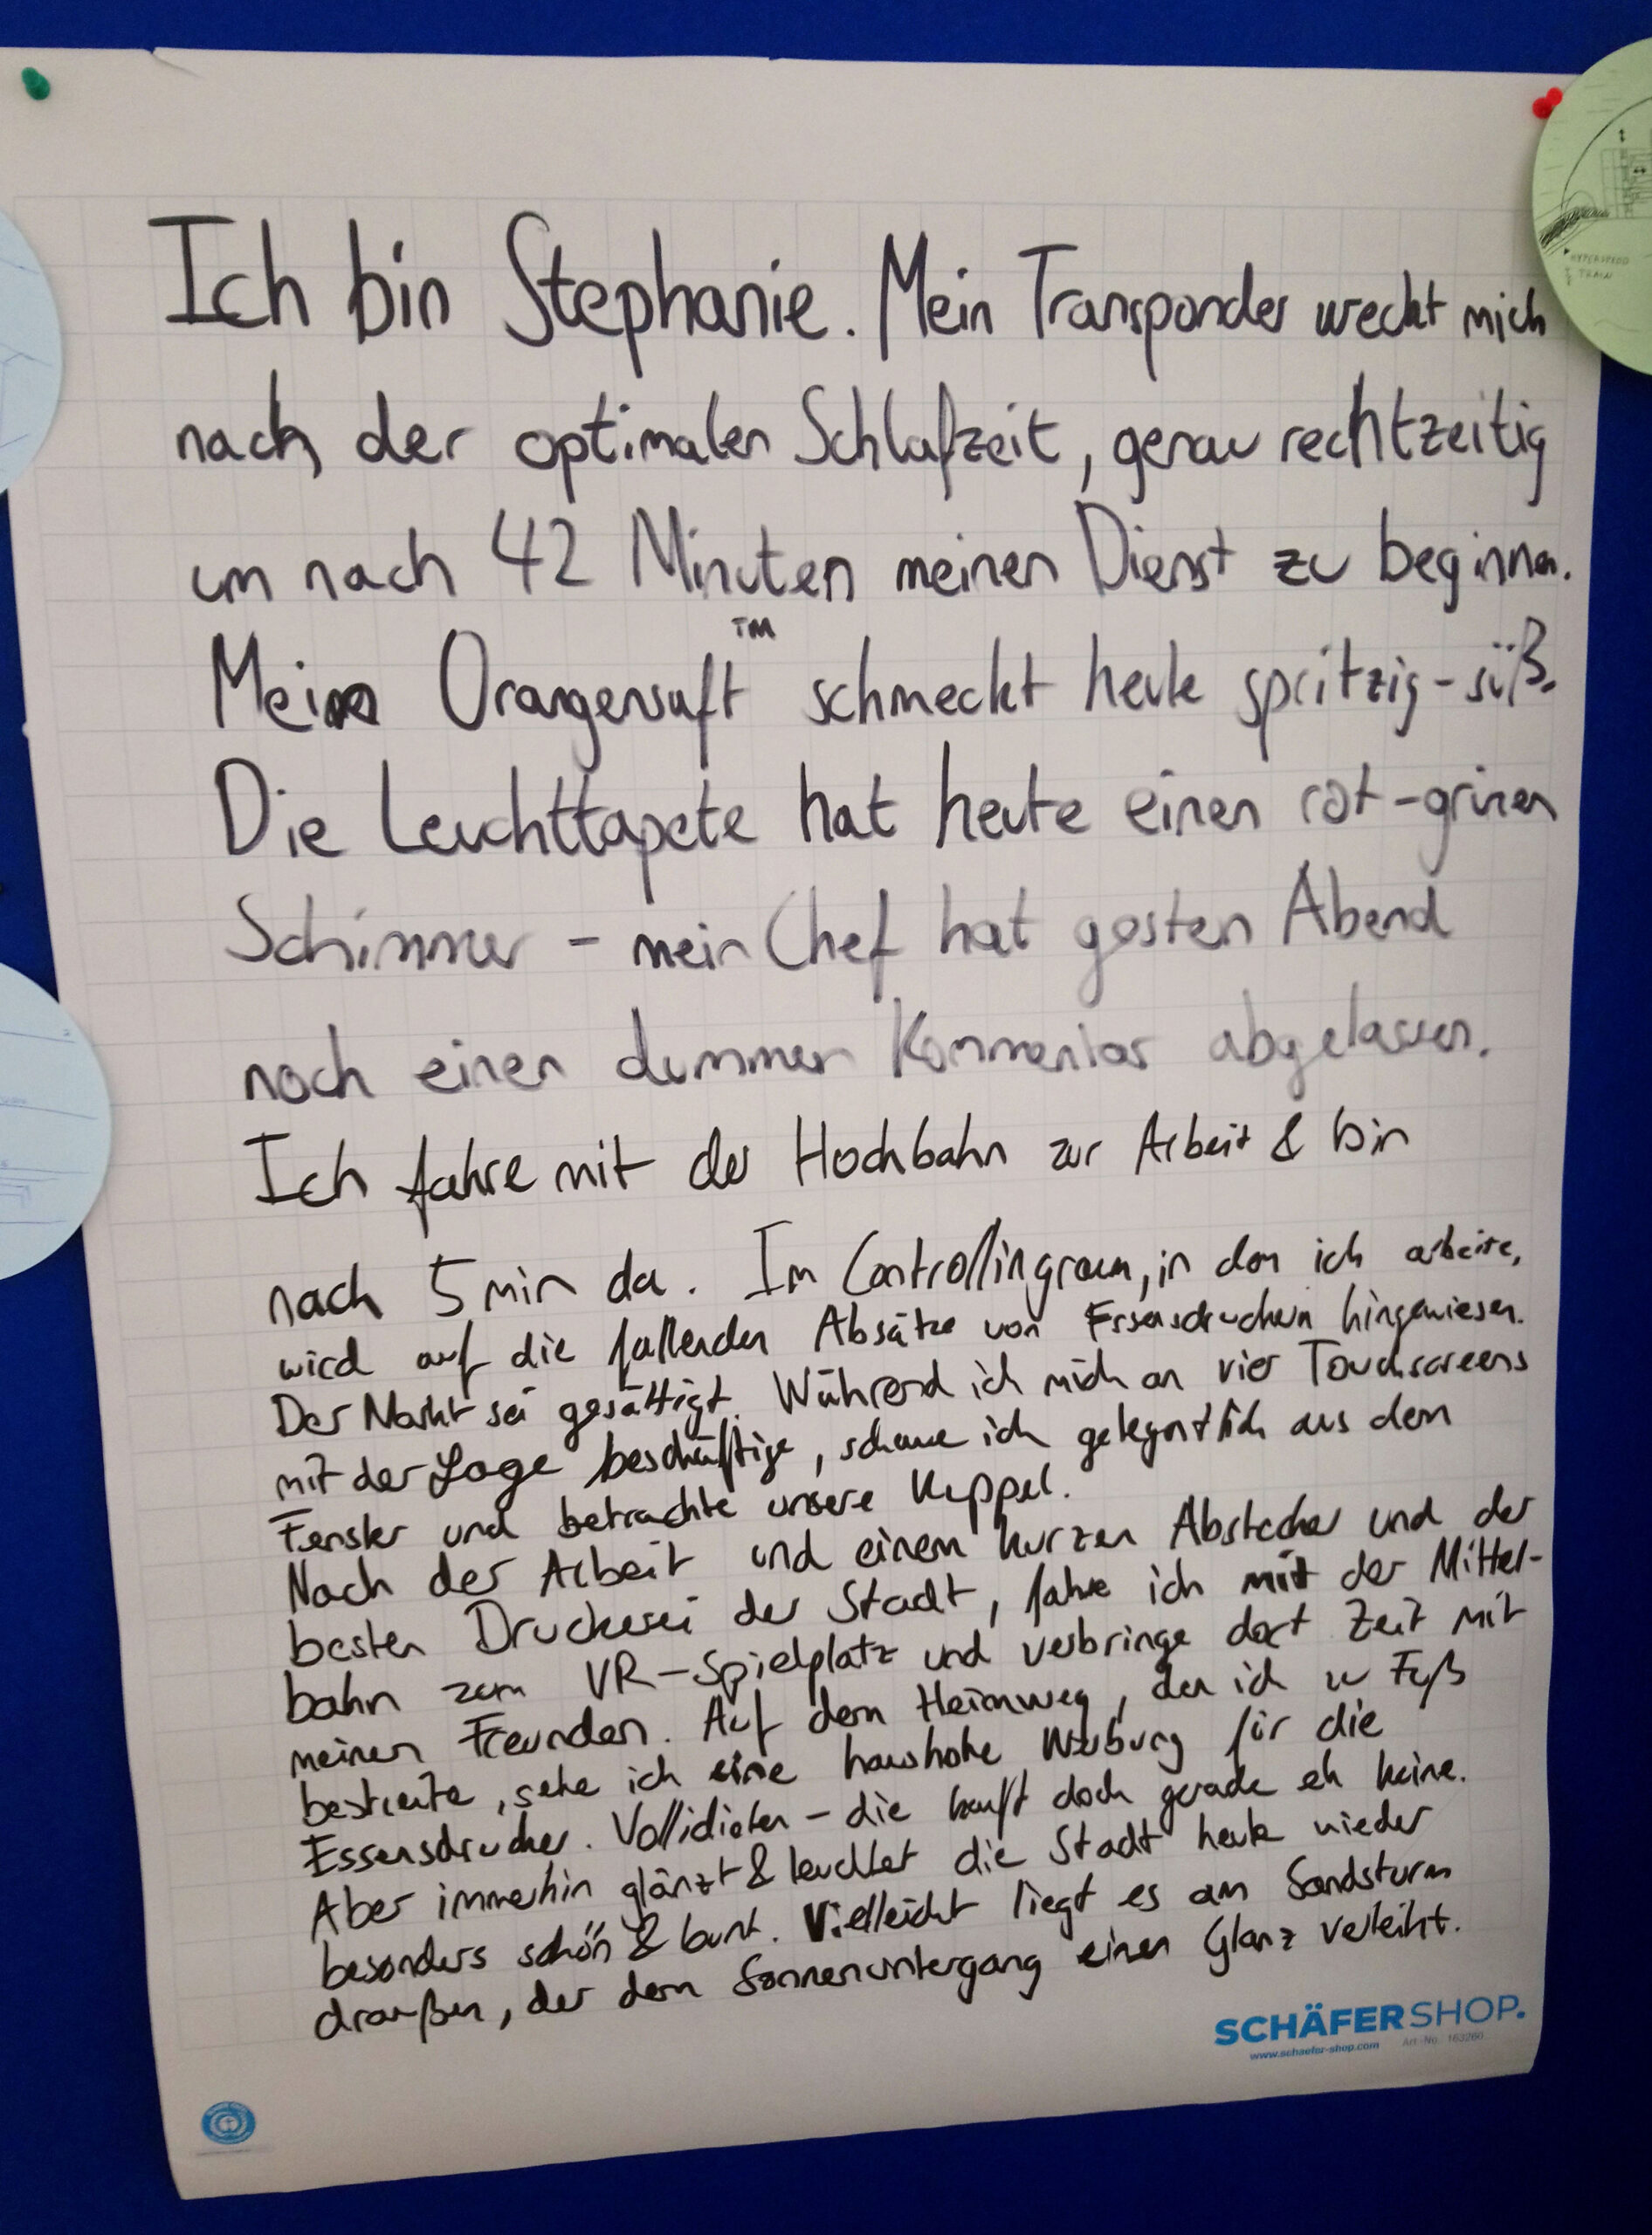 Ich bin Stephanie. Mein Transponder weckt mich
nach der optimalen Schlafzeit, genau rechtzeitig
um nach 42 Minuten meinen Dienst zu beginnen.
Mein Orangensaft™ schmeckt heute spritzig-süß.
Die Leuchttapete hat heute einen rot-grünen
Schimmer - mein Chef hat gestern Abend
noch einen dummen Kommentar abgelassen.
Ich fahre mit der Hochbahn zur Arbeit & bin
nach 5 min da. Im Controllingraum, in dem ich arbeite,
wird auf die fallenden Absätze von Essensdruckern hingewiesen.
Der Markt sei gesättigt. Während ich mich an vier Touchscreens
mit der Lage beschäftige, schaue ich gelegentlich aus dem
Fenster und betrachte unsere Kuppel.
Nach der Arbeit und einem kurzen Abstecher und der
besten Druckerei der Stadt, fahre ich mit der Mittel-
bahn zum VR-Spielplatz und verbringe dort Zeit mit
meinen Freunden. Auf dem Heimweg, den ich zu Fuß
bestreite, sehe ich eine haushohe Werbung für die
Essensdrucker. Vollidioten - die kauft doch gerade eh keine.
Aber immerhin glänzt & leuchtet die Stadt heute wieder
besonders schön & bunt. Vielleicht liegt es am Sandsturm
draußen, der dem Sonnenuntergang einen Glanz verleiht.
SCHÄFER SHOP.
www.schaefer-shop.com Art.-No. 163260
HYPERSPEED
TRAIN